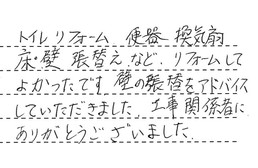 トイレリフォーム 便器 換気扇
床・壁 張替えなど. リフォームして
よかったです. 壁の張替をアドバイス
していただきました. 工事関係者に
ありがとうございました.